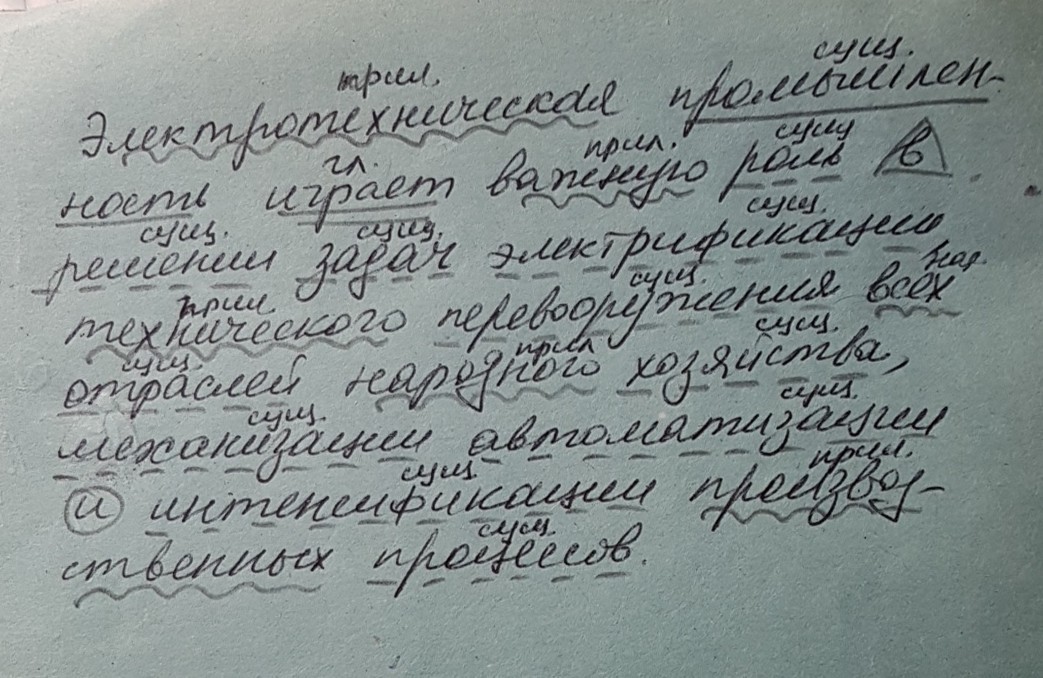 прил. сущ.
Электротехническая промышлен-
гл. прил. сущ
ность играет важную роль в
сущ. сущ. сущ.
решении задач электрификации
прил сущ. нар.
технического перевооружения всех
сущ прил сущ.
отраслей народного хозяйства,
сущ. сущ.
механизации автоматизации
сущ прил.
и интенсификации производ-
сущ.
ственных процессов.